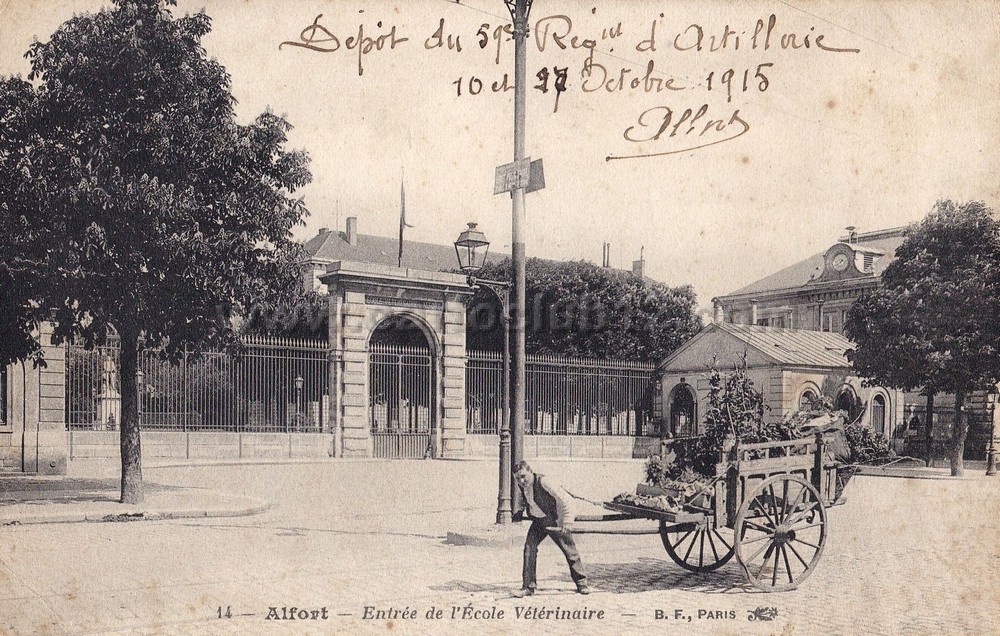 Dépot du 59e Regint d'Artillerie
10 et 17 Octobre 1915
14 — Alfort — Entrée de l'École Vétérinaire — B. F., PARIS